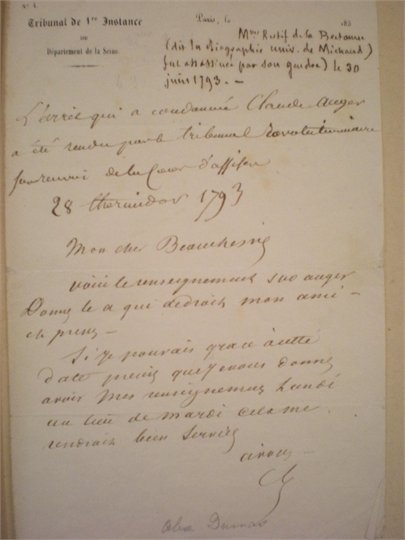 N° 1.
Tribunal de 1re Instance
DU
Département de la Seine.
Paris, le 183
Mme Restif de la Bretonne
(dit la Biographie univ. de Michaud)
fut assassinée par son gendre le 30
juin 1793. —
L'arrêt qui a condamné Claude Auger
a été rendu par le tribunal Révolutionnaire
de la Cour d'assises
28 thermidor 1793
Mon cher Beauchesne
voici le renseignement sur auger
Donnez le a qui de droit mon ami —
et prenez —
Si je pouvais grace à cette
date précise que je vous donne
avoir mes renseignemens Lundi
au lieu de mardi cela me
rendrait bien service
à vous —
Alex Dumas